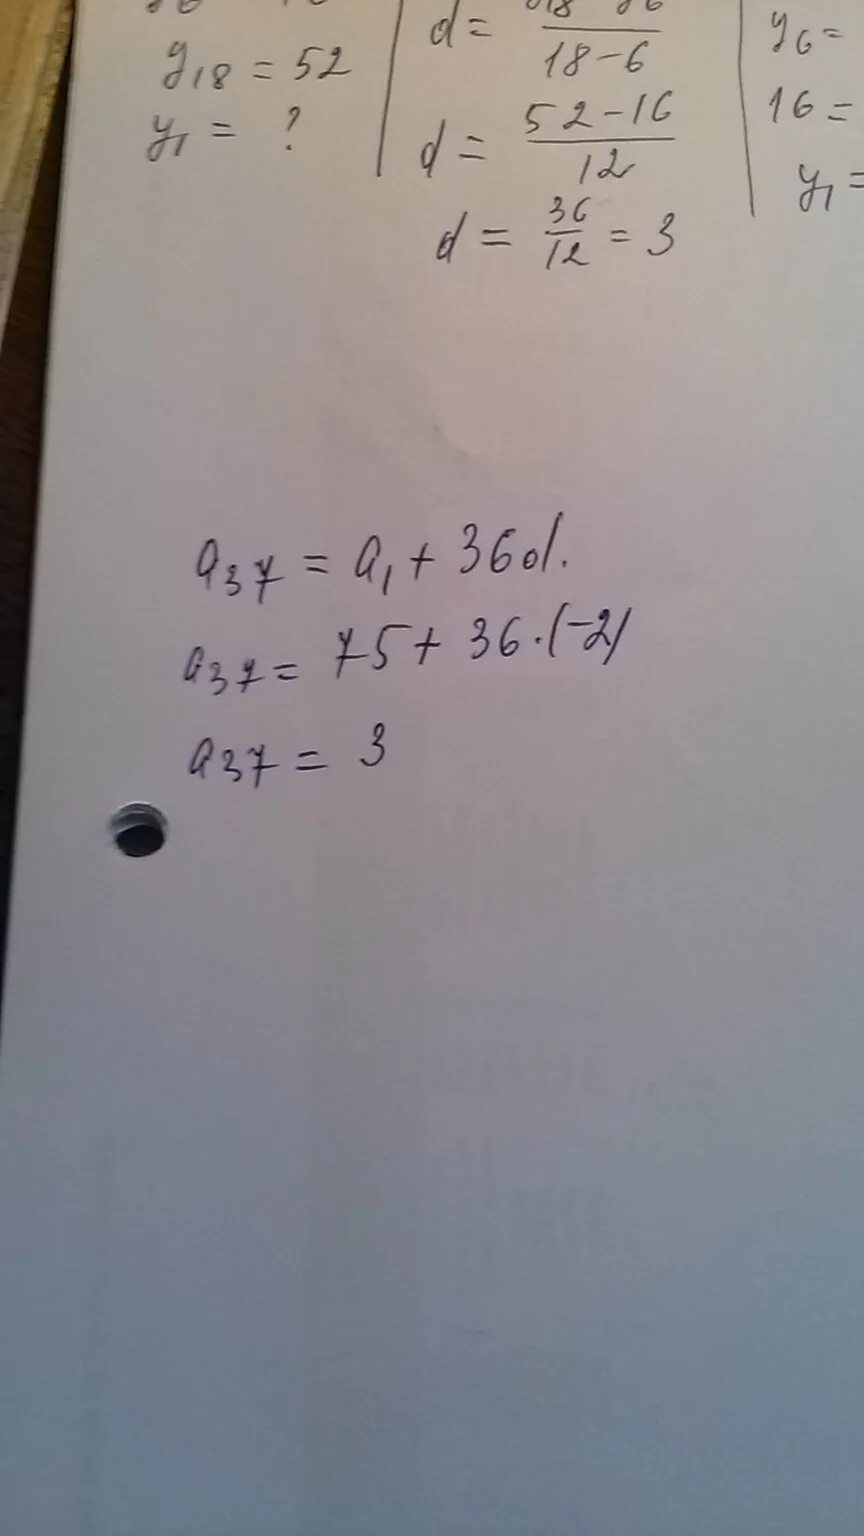 y₁₈ = 52
y₁ = ?
d =
18 - 6
d = (52 - 16)/12
d = 36/12 = 3
y₆ =
16 =
y₁ =
a₃₇ = a₁ + 36d.
a₃₇ = 75 + 36·(-2)
a₃₇ = 3